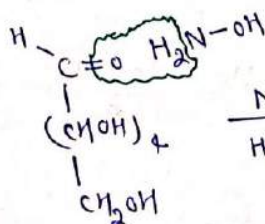 H C = O H₂N-OH
(CHOH)₄
CH₂OH
N
H